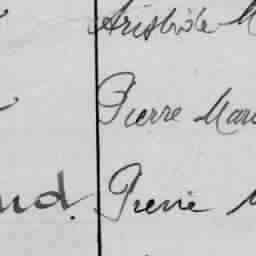 Aristide M
Pierre Mari
nd. Pierre M